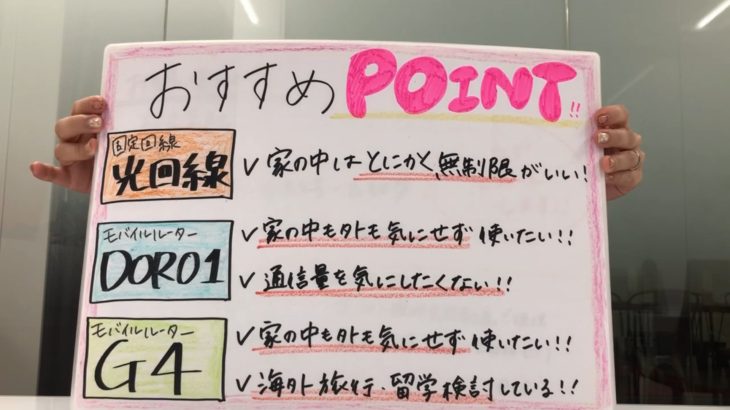 おすすめ POINT!!
固定回線
光回線
✓ 家の中はとにかく、無制限がいい!
モバイルルーター
DOR01
✓ 家の中も外も気にせず使いたい!!
✓ 通信量を気にしたくない!!
モバイルルーター
G4
✓ 家の中も外も気にせず使いたい!!
✓ 海外旅行・留学検討している!!